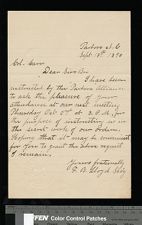 Pactolus N.C.
Sept. 8th 1890
Col. Carr
Dear Sir & Bro
I have been
instructed by the Pactolus Alliance
to ask the pleasure of your
attendance at our next meeting
Thursday Oct 2nd at 2 P.M. for
the purpose of instructing us in
the secret work of our order.
Hoping that it may be convenient
for you to grant the above request
I remain,
Yours fraternally
FEN Color Control Patches